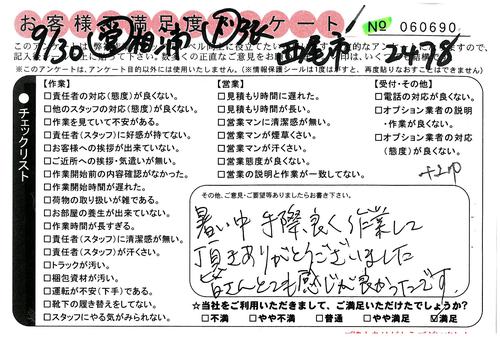 お客様満足度アンケート
No 060690
9/30 相浦
西尾市 2478
※このアンケートは、アンケート目的以外には使用いたしません。（※情報保護シールは1度はがすと、再度貼りなおすことはできません）
チェックリスト
【作業】
□責任者の対応（態度）が良くない。
□他のスタッフの対応（態度）が良くない。
□作業を見ていて不安がある。
□責任者（スタッフ）に好感が持てない。
□お客様への挨拶が出来ていない。
□ご近所への挨拶・気遣いが無い。
□作業開始前の内容確認がなかった。
□作業開始時間が遅れた。
□荷物の取り扱いが雑である。
□お部屋の養生が出来ていない。
□作業時間が長すぎる。
□責任者（スタッフ）に清潔感が無い。
□責任者（スタッフ）が汗くさい。
□トラックが汚い。
□梱包資材が汚い。
□運転が不安（下手）である。
□靴下の履き替えをしてない。
□スタッフにやる気がみられない。
【営業】
□見積もり時間に遅れた。
□見積もり時間が長い。
□営業マンに清潔感が無い。
□営業マンが煙草くさい。
□営業マンが汗くさい。
□営業態度が良くない。
□営業の説明と作業が一致してない。
【受付・その他】
□電話の対応が良くない。
□オプション業者の説明
・作業が良くない。
□オプション業者の対応
（態度）が良くない。
その他、ご意見・ご要望等ありましたらお書き下さい。
暑い中 手際良く作業して
頂きありがとうございました
皆さんとても感じが良かったです。
☆当社をご利用いただきまして、ご満足いただけたでしょうか？
□不満 □やや不満 □普通 □やや満足 ☑満足